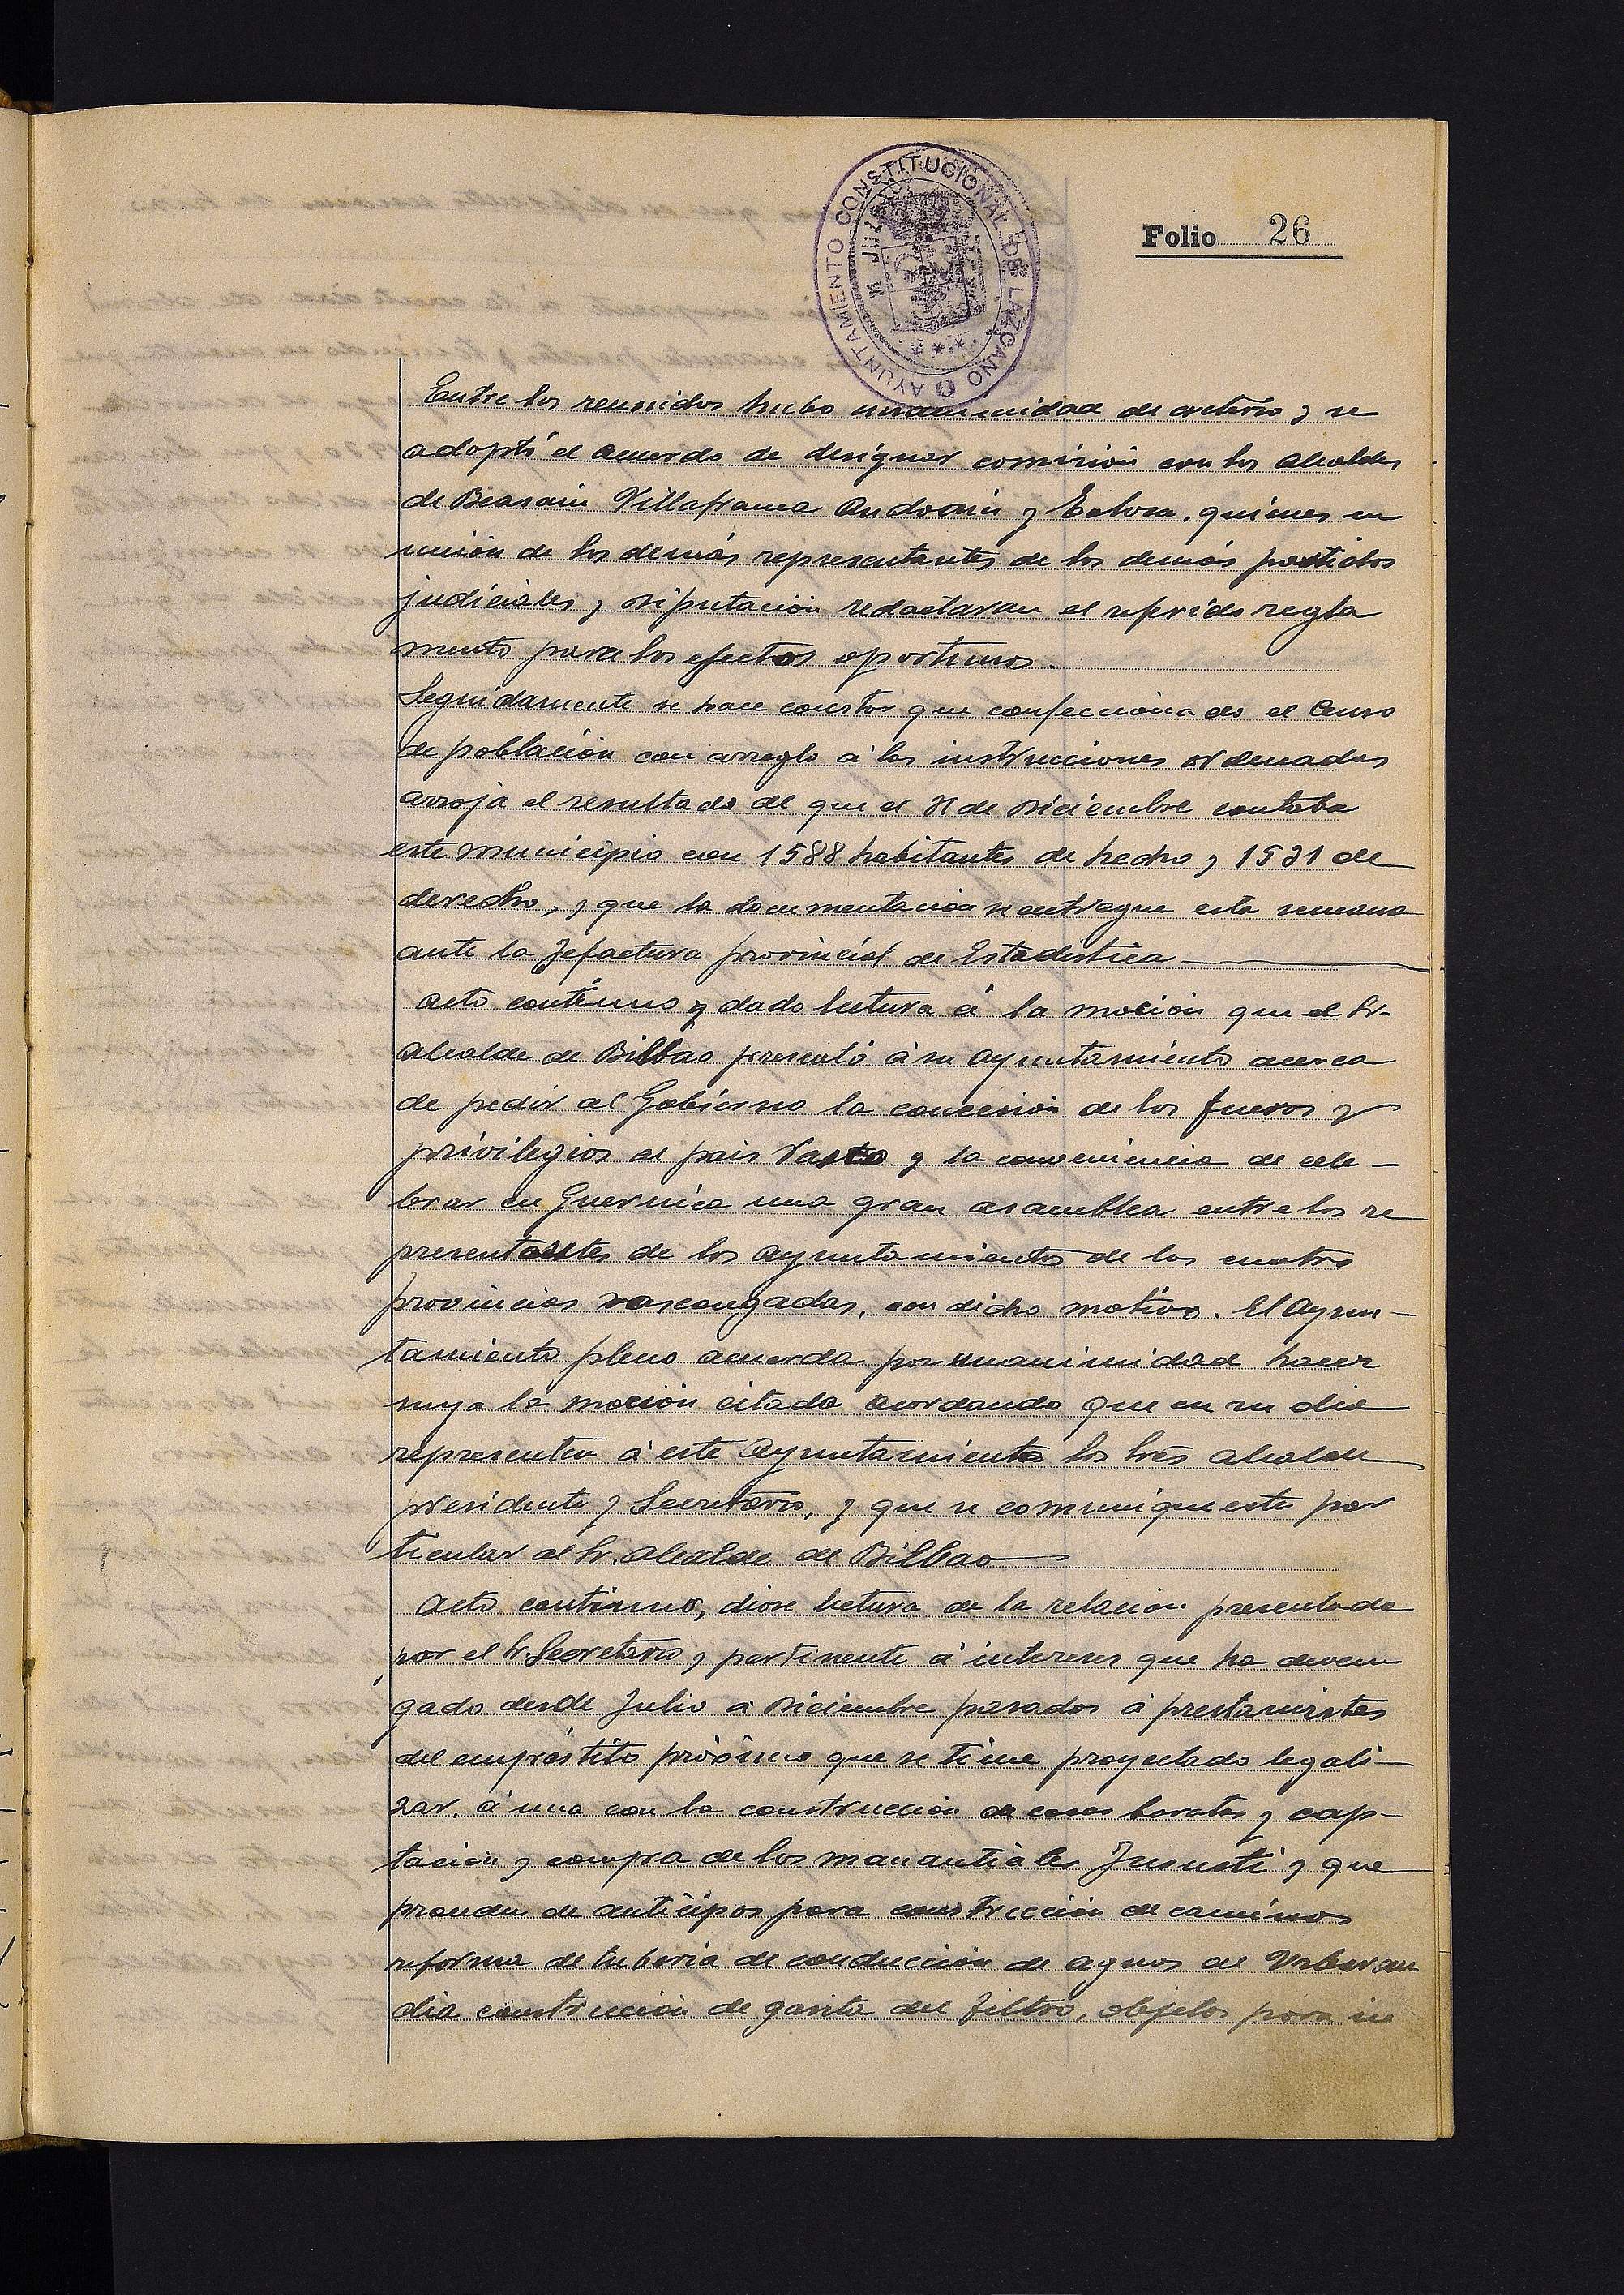 AYUNTAMIENTO CONSTITUCIONAL DE LAZCANO
Folio 26
Entre los reunidos hubo unanimidad de criterio y se
adoptó el acuerdo de designar comisión con los alcaldes
de Beasain Villafranca Andoain y Tolosa, quienes en
unión de los demás representantes de los demás partidos
judiciales y Diputación redactaran el referido regla
mento para los efectos oportunos.
Seguidamente se hace constar que confeccionado el Censo
de población con arreglo á las instrucciones ordenadas
arroja el resultado de que el 31 de Diciembre contaba
este municipio con 1588 habitantes de hecho y 1531 de
derecho, y que la documentación se entregue esta semana
ante la Jefactura provincial de Estadistica
Acto contínuo y dado lectura á la moción que el Sr.
Alcalde de Bilbao presentó á su ayuntamiento acerca
de pedir al Gobierno la concesión de los fueros y
privilegios al pais Vasco y la conveniencia de cele-
brar en Guernica una gran asamblea entre los re
presentantes de los ayuntamientos de las cuatro
provincias vascongadas, con dicho motivo. El Ayun-
tamiento pleno acuerda por unanimidad hacer
suya la moción citada acordando que en su dia
representen á este Ayuntamiento los Sres alcalde
presidente y Secretario, y que se comunique este par
ticular al Sr. Alcalde de Bilbao
Acto continuo, diose lectura de la relación presentada
por el Sr. Secretario y pertinente á intereses que ha deven
gado desde Julio a Diciembre pasados á prestamistas
del empréstito próximo que se tiene proyectado legali-
zar, á una con la construcción de casas baratas y cap-
tación y compra de los manantiales Jususti y que
de anticipos para construcción de caminos
reforma de tuberia de conducción de aguas de
dia construcción de garita del filtro, objetos para in